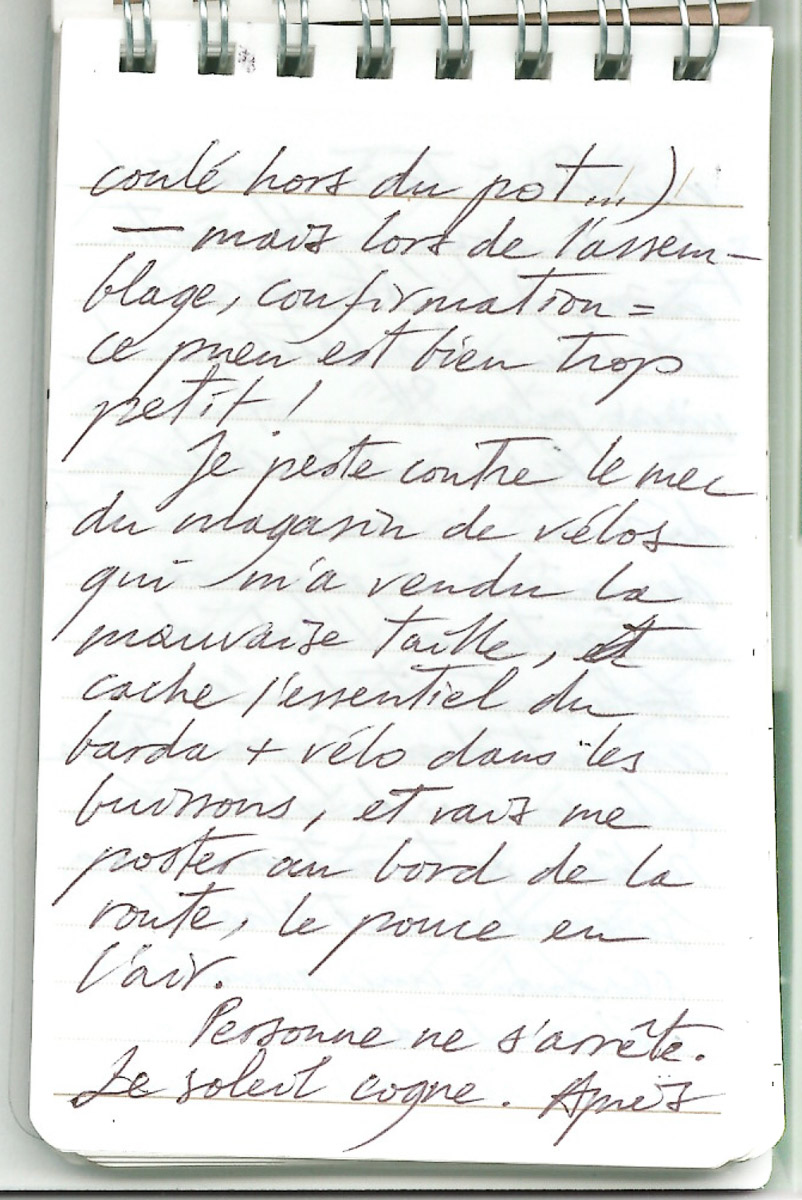 coulé hors du pot...)
— mais lors de l'assem-
blage, confirmation =
ce pneu est bien trop
petit !
Je peste contre le mec
du magasin de vélos
qui m'a vendu la
mauvaise taille, et
cache l'essentiel du
barda + vélo dans les
buissons, et vais me
poster au bord de la
route, le pouce en
l'air.
Personne ne s'arrête.
Le soleil cogne. Après